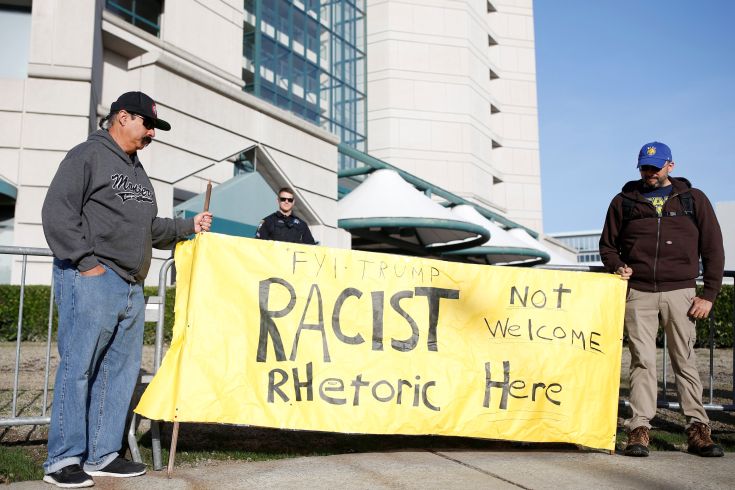 FYI-TRUMP
RACIST
RHetoric
Not
Welcome
Here